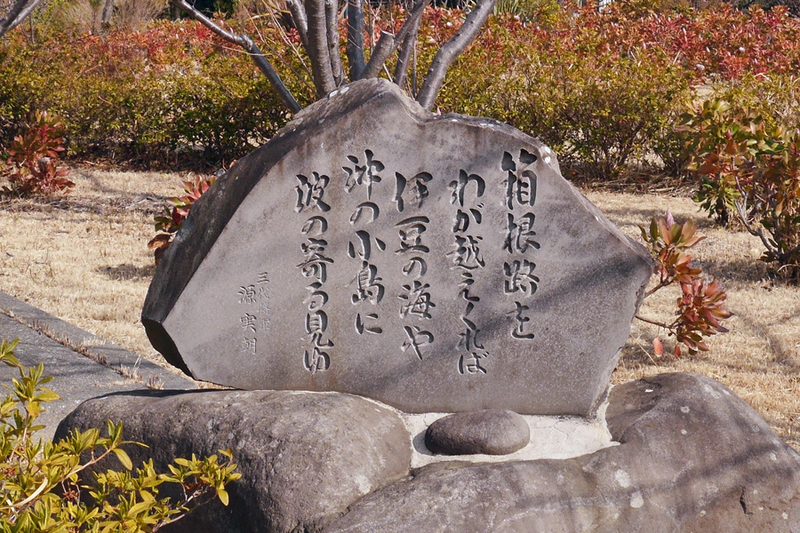 箱根路を
わが越えくれば
伊豆の海や
沖の小島に
波の寄る見ゆ
三代将軍
源実朝